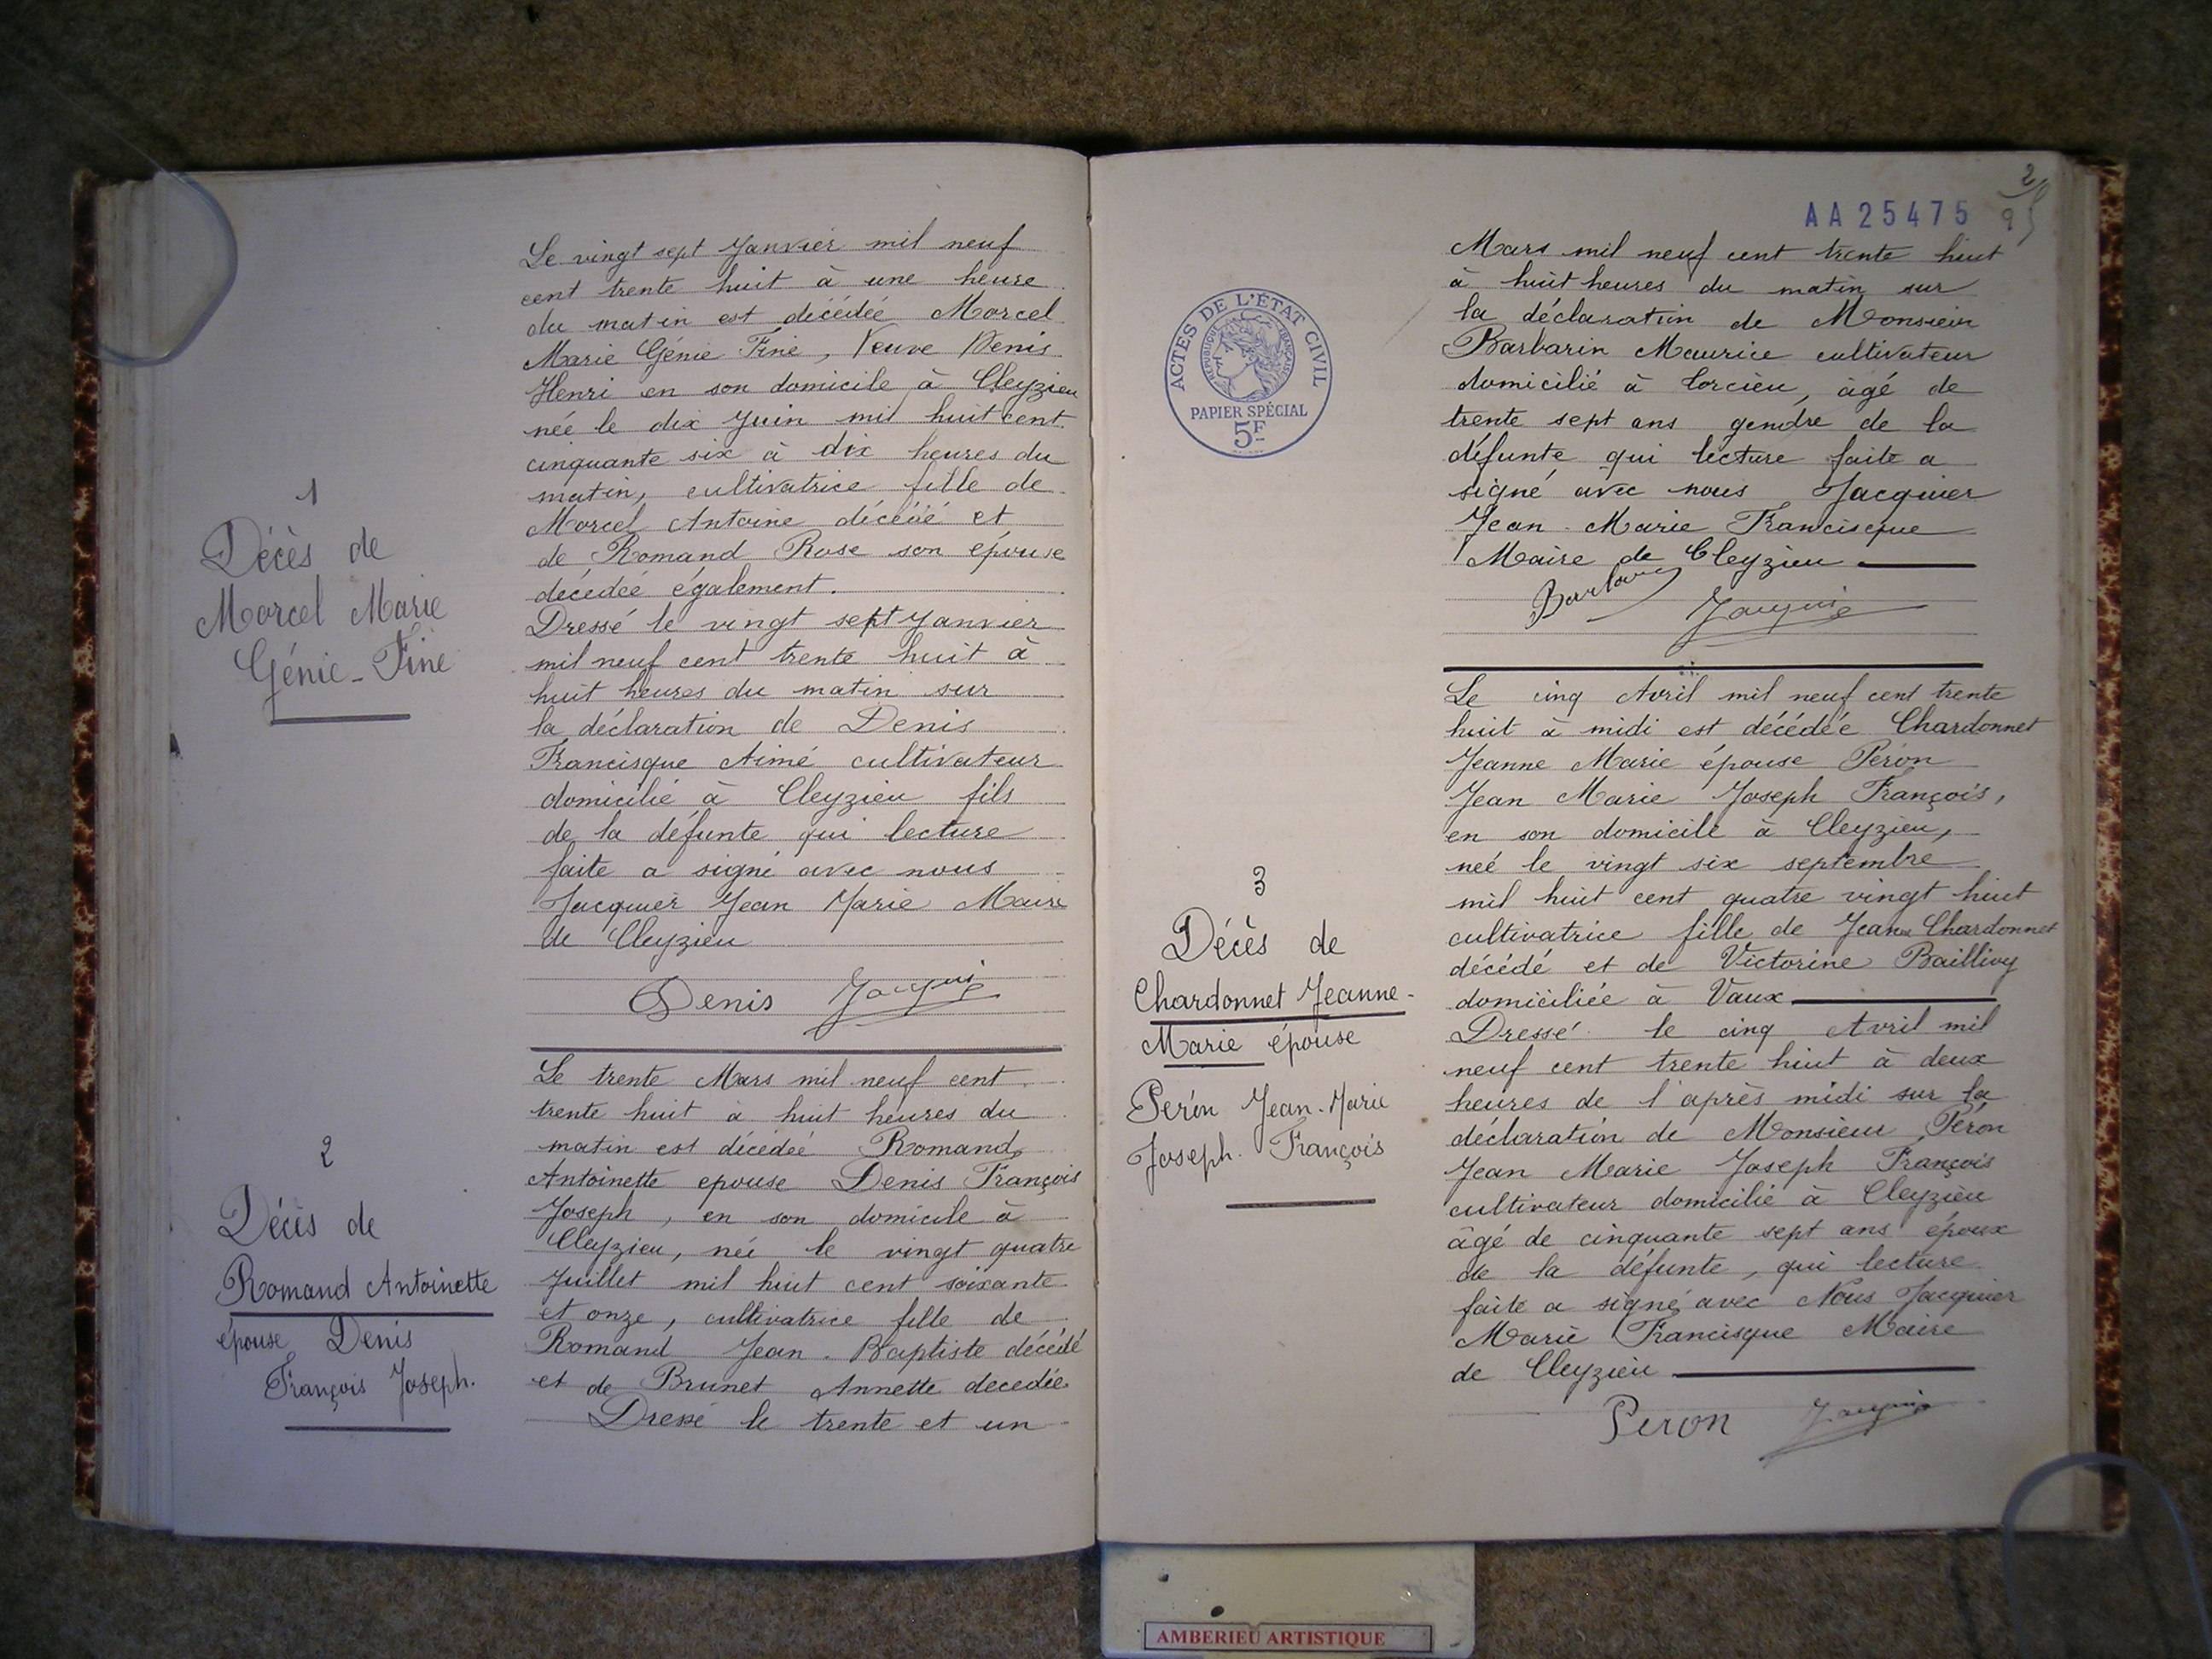 1
Décès de
Marcel Marie
Génie-Fine
Le vingt sept Janvier mil neuf
cent trente huit à une heure
du matin est décédée Marcel
Marie Génie Fine, Veuve Denis
Henri en son domicile à Cleyzieu
née le dix Juin mil huit cent
cinquante six à dix heures du
matin, cultivatrice fille de
Marcel Antoine décédé et
de Romand Rose son épouse
décédée également.
Dressé le vingt sept Janvier
mil neuf cent trente huit à
huit heures du matin sur
la déclaration de Denis
Francisque Aimé cultivateur
domicilié à Cleyzieu fils
de la défunte qui lecture
faite a signé avec nous
Jacquier Jean Marie Maire
de Cleyzieu
Denis Jacquier
2
Décès de
Romand Antoinette
épouse Denis
François Joseph.
Le trente Mars mil neuf cent
trente huit à huit heures du
matin est décédée Romand
Antoinette epouse Denis François
Joseph, en son domicile à
Cleyzieu, née le vingt quatre
Juillet mil huit cent soixante
et onze, cultivatrice fille de
Romand Jean-Baptiste décédé
et de Brunet Annette decedée
Dressé le trente et un
2
AA25475
ACTES DE L'ÉTAT CIVIL
RÉPUBLIQUE FRANÇAISE
PAPIER SPÉCIAL
5F
Mars mil neuf cent trente huit
à huit heures du matin sur
la déclaration de Monsieur
Barbarin Maurice cultivateur
domicilié à Torcieu, âgé de
trente sept ans gendre de la
défunte qui lecture faite a
signé avec nous Jacquier
Jean-Marie Francisque
Maire de Cleyzieu
Jacquier
3
Décès de
Chardonnet Jeanne-
Marie épouse
Peron Jean-Marie
Joseph. François
Le cinq Avril mil neuf cent trente
huit à midi est décédée Chardonnet
Jeanne Marie épouse Peron
Jean Marie Joseph François,
en son domicile à Cleyzieu,
née le vingt six septembre
mil huit cent quatre vingt huit
cultivatrice fille de Jean Chardonnet
décédé et de Victorine Baillivy
domiciliée à Vaux
Dressé le cinq Avril mil
neuf cent trente huit à deux
heures de l'après midi sur la
déclaration de Monsieur Péron
Jean Marie Joseph François
cultivateur domicilié à Cleyzieu
âgé de cinquante sept ans époux
de la défunte, qui lecture
faite a signé avec Nous Jacquier
Marie Francisque Maire
de Cleyzieu
Peron Jacquier
AMBERIEU ARTISTIQUE